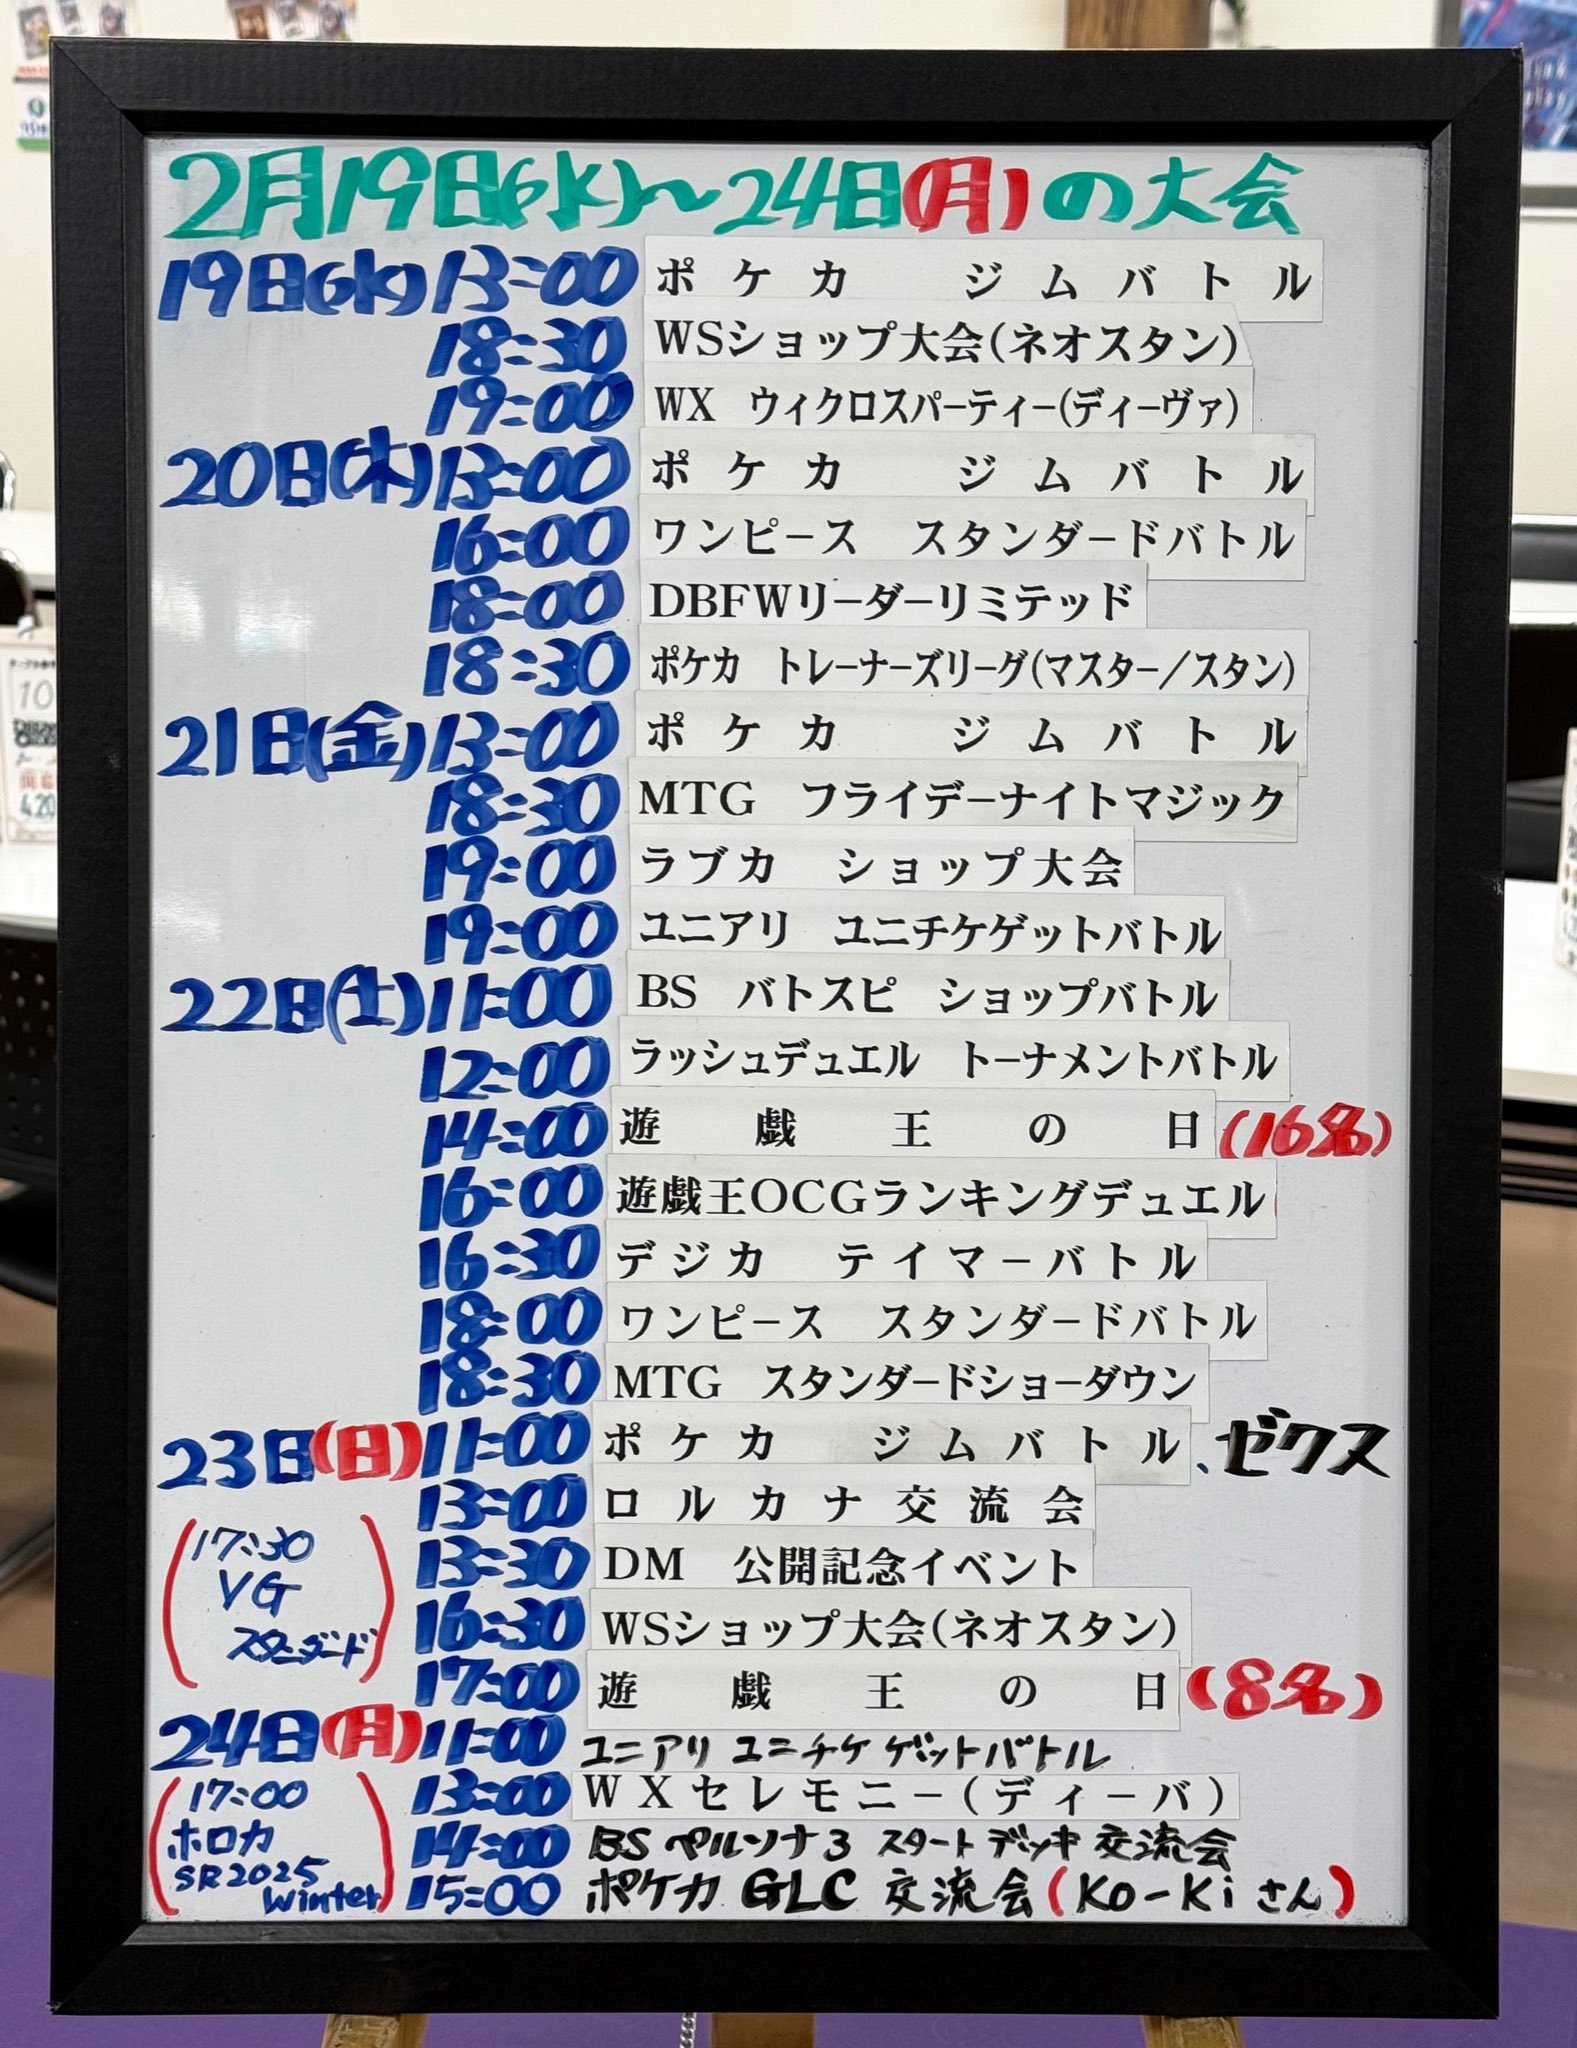 2月19日(水)～24日(月)の大会
19日(水) 13:00 ポケカ ジムバトル
18:30 WSショップ大会(ネオスタン)
19:00 WX ウィクロスパーティー(ディーヴァ)
20日(木) 13:00 ポケカ ジムバトル
16:00 ワンピース スタンダードバトル
18:00 DBFWリーダーリミテッド
18:30 ポケカ トレーナーズリーグ(マスター/スタン)
21日(金) 13:00 ポケカ ジムバトル
18:30 MTG フライデーナイトマジック
19:00 ラブカ ショップ大会
19:00 ユニアリ ユニチケゲットバトル
22日(土) 11:00 BS バトスピ ショップバトル
12:00 ラッシュデュエル トーナメントバトル
14:00 遊戯王の日 (16名)
16:00 遊戯王OCGランキングデュエル
16:30 デジカ テイマーバトル
18:00 ワンピース スタンダードバトル
18:30 MTG スタンダードショーダウン
23日(日) 11:00 ポケカ ジムバトル、ゼクス
13:00 ロルカナ交流会
13:30 DM 公開記念イベント
16:30 WSショップ大会(ネオスタン)
17:00 遊戯王の日 (8名)
(17:30
VG
スタンダード)
24日(月) 11:00 ユニアリ ユニチケゲットバトル
13:00 WXセレモニー(ディーバ)
14:00 BS ペルソナ3 スタートデッキ 交流会
15:00 ポケカ GLC 交流会(Ko-Kiさん)
(17:00
ホロカ
SR2025
Winter)